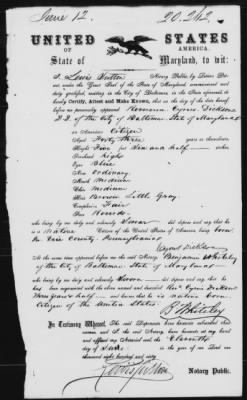 June 12. 20.262.
UNITED STATES
OF AMERICA.
State of Maryland, to wit:
I, Lewis Sutton Notary Public by Letters
under the Great Seal of the State of Maryland commissioned and
duly qualified, residing in the City of Baltimore, in the State aforesaid do
hereby Certify, Attest and Make Known, that on the day of the date hereof,
before me personally appeared Reverend Cyrus Dickson
D.D. of the City of Baltimore State of Maryland
an American Citizen
Aged Forty Three years or thereabouts,
Height Five feet Six and a half inches
Forehead High
Eyes Blue
Nose Ordinary
Mouth Medium
Chin Medium
Hair Brown Little Gray
Complexion Fair
Face Round
who being by me duly sworn did depose and say that he
is a Native Citizen of the United States of America being born
in Erie County Pennsylvania
Cyrus Dickson
At the same time appeared before me the said Notary Benjamin Whiteley
of the City of Baltimore State of Maryland
who being by me duly sworn did depose and say that he
has been acquainted with the above named and described Rev. Cyrus Dickson
and a half and he is a native born
Citizen of the United States. B. Whiteley
In Testimony Whereof, The said Deponents have hereunto subscribed their
names and I, the said Notary have hereunto set my hand
and affixed my Notarial seal the Eleventh
day of June in the year of our Lord one
thousand eight hundred and sixty
Lewis Sutton
Notary Public.